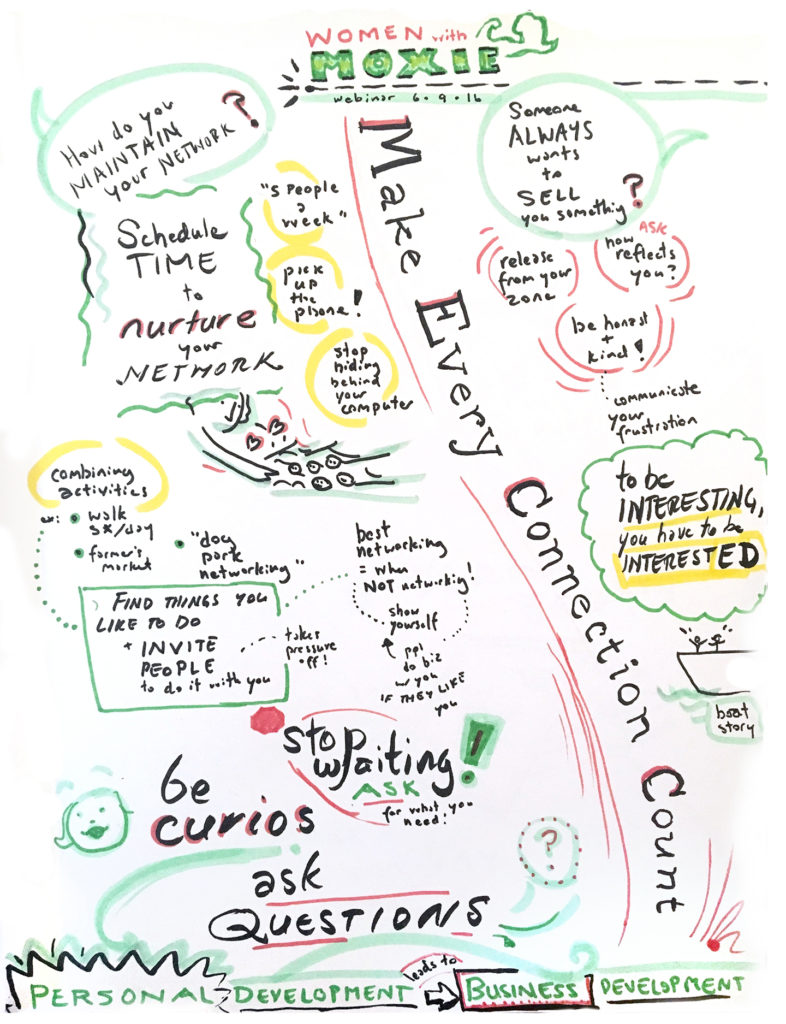 WOMEN with
MOXIE
webinar 6.9.16
How do you
MAINTAIN
your NETWORK?
Schedule
TIME
to
nurture
your
NETWORK
"5 PEOPLE
a
week"
pick
up
the
phone!
stop
hiding
behind
your
computer
Make Every Connection Count
Someone
ALWAYS
wants
to
SELL
you something?
release
from your
zone
ASK
how
reflects
you?
be honest
+
kind!
communicate
your
frustration
to be
INTERESTING,
you have to be
INTERESTED
boat
story
combining
activities
ex:
walk
5x/day
farmer's
market
"dog
park
networking"
best
networking
= when
NOT networking!
show
yourself
ppl
do biz
w/ you
IF THEY LIKE
you
FIND THINGS YOU
LIKE TO DO
+ INVITE
PEOPLE
to do it with you
takes
pressure
off!
stop
waiting!
ASK
for what you
need!
be
curios
ask
QUESTIONS
?
PERSONAL DEVELOPMENT leads to BUSINESS DEVELOPMENT